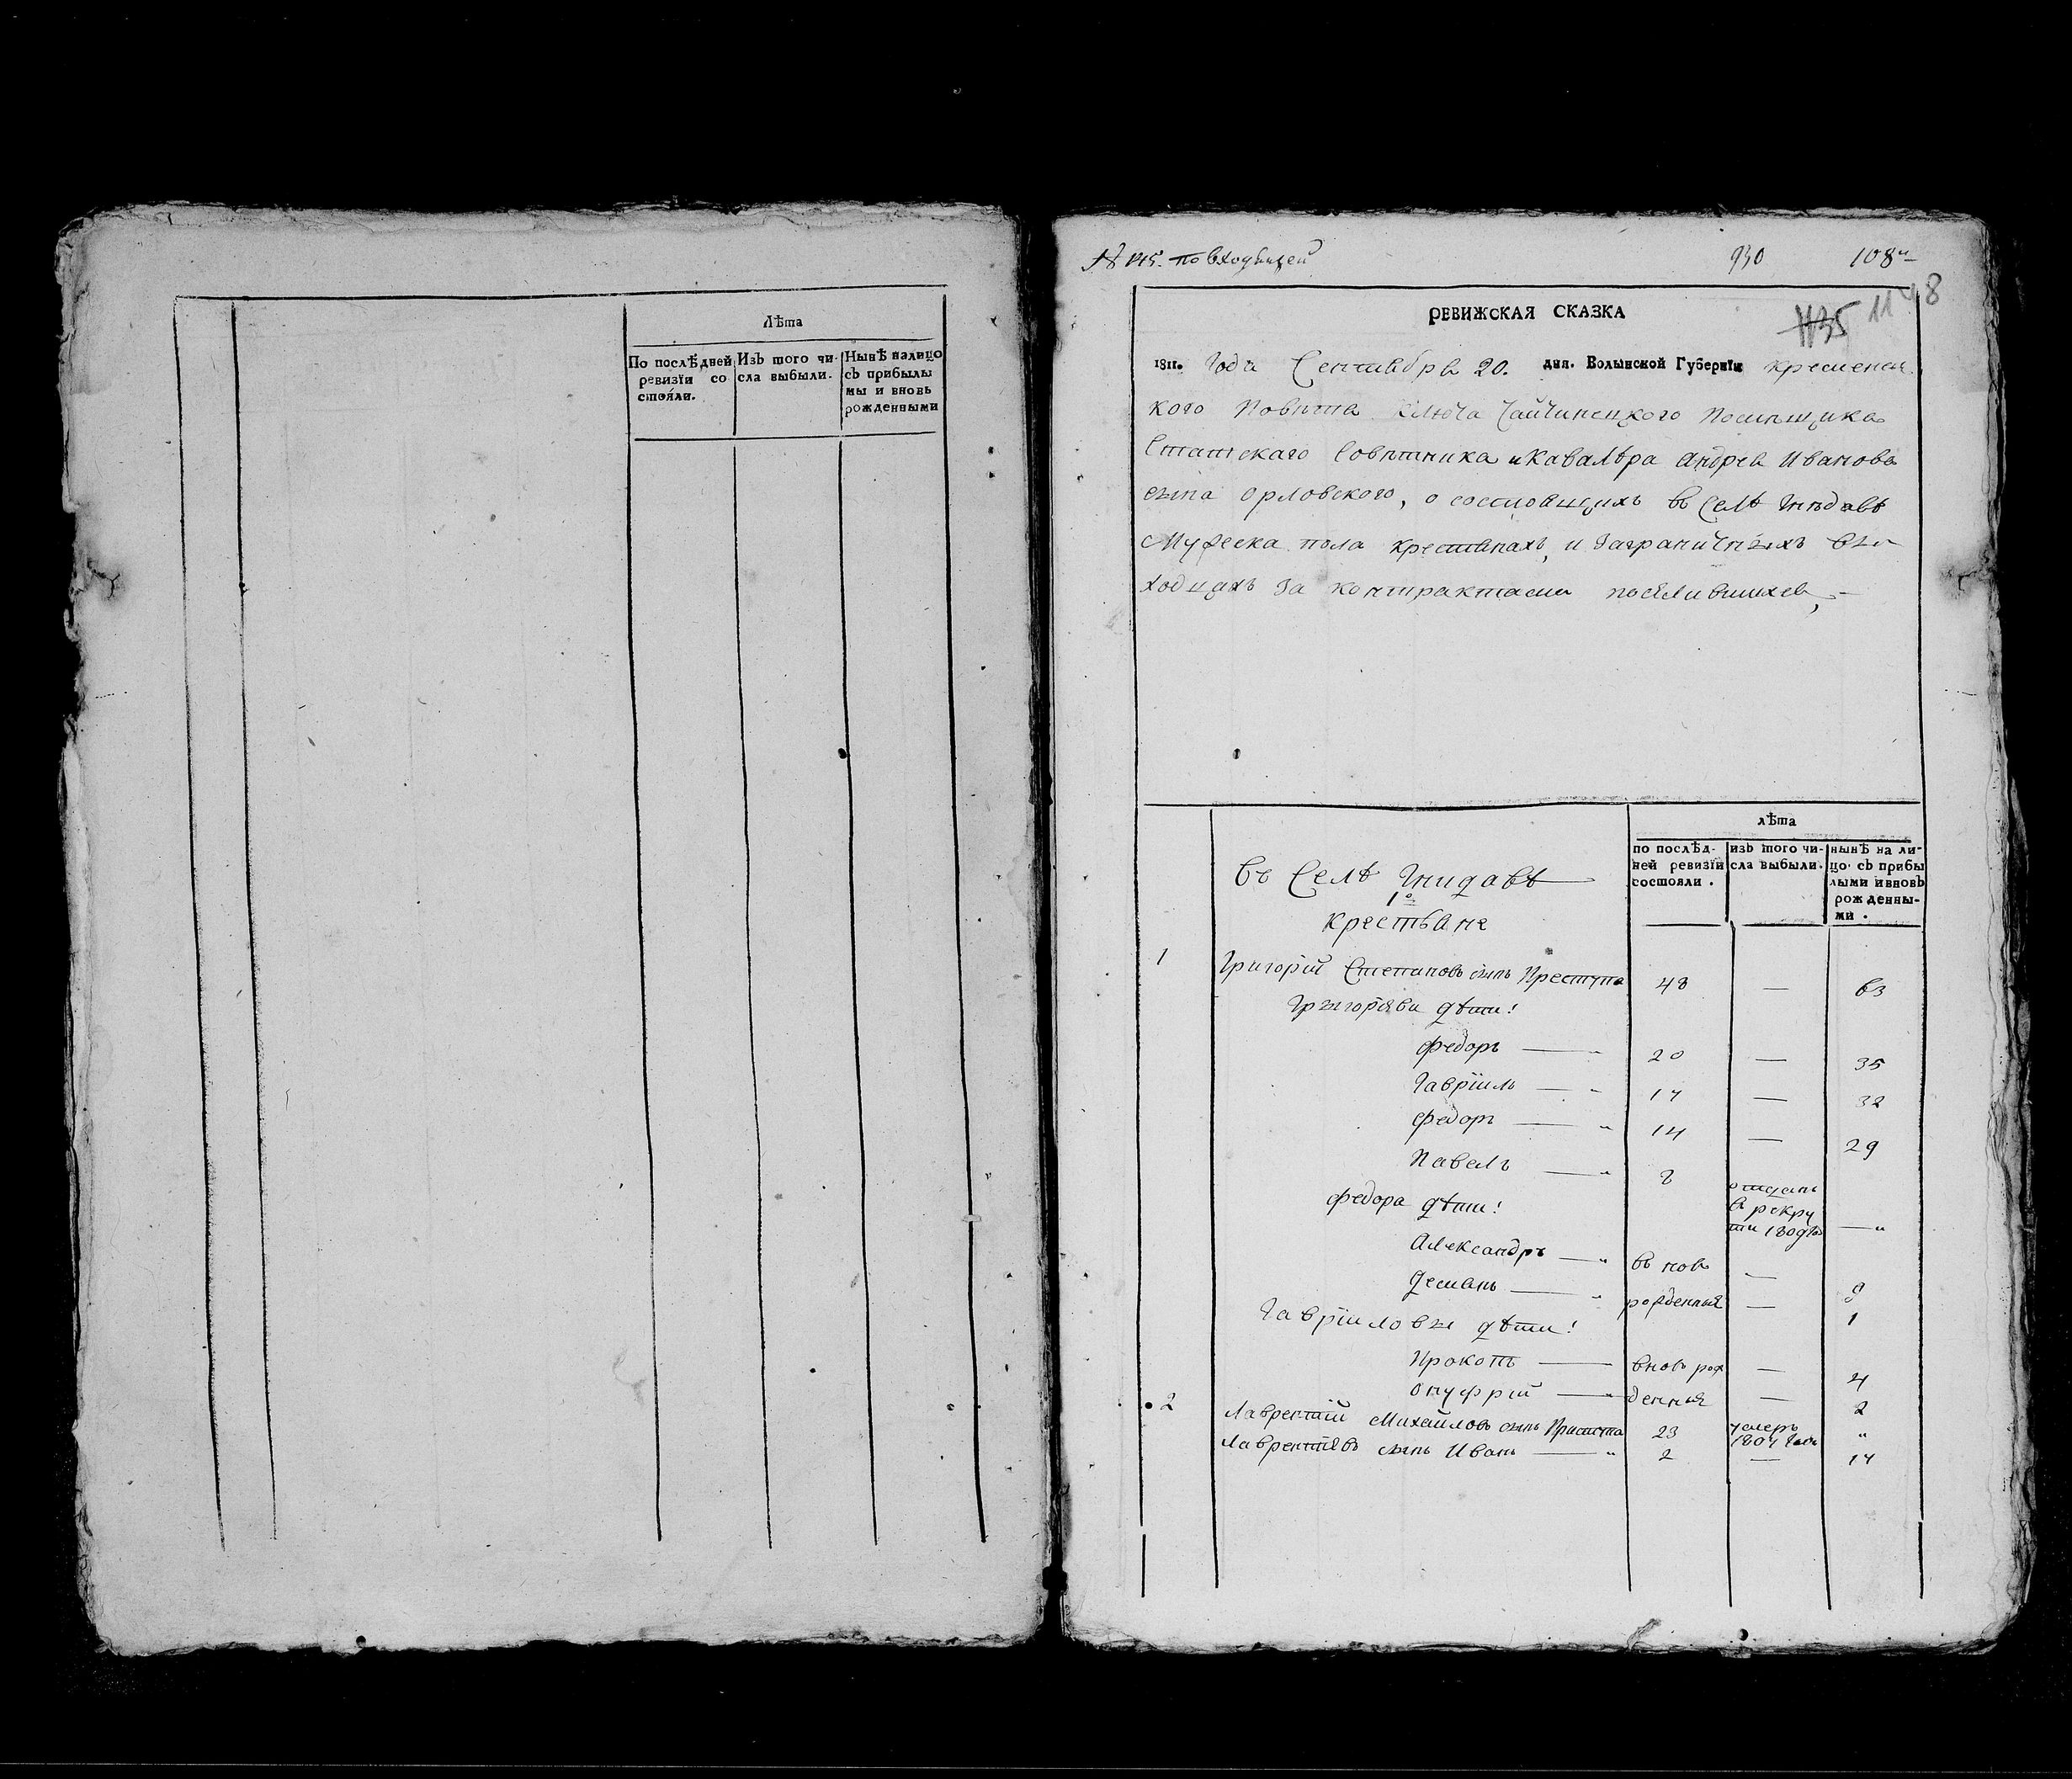 Лѣта
По послѣдней ревизїи со стояли.
Изъ того чи- сла выбыли.
Нынѣ налицо съ прибылы мы и вновь рожденными
930
108
1135
1148
РЕВИЖСКАЯ СКАЗКА
1811. Года Сентября 20. дня. Волынской Губернїи Кременец
кого Повѣта Ключа Чайчинецкого Помѣщика
Статскаго Совѣтника и Кавалѣра Андрея Иванова
сына Орловского, о состоящихъ въ Селѣ Гнѣдавѣ
Мужеска пола крестянахъ, и Заграничныхъ вы
ходцахъ за контрактами поселившихся,
лѣта
по послѣд- ней ревизїи состояли.
изъ того чи- сла выбыли.
нынѣ на ли- цо съ прибы лыми и вновь рожденны- ми.
Въ Селѣ Гнидавѣ
1о
крестьяне
1 Григорїй Степановъ сынъ Преступа 48 — 63
Грыгорїеви дѣти:
Федоръ — 20 — 35
Гаврїилъ — 17 — 32
Федоръ — 14 — 29
Павелъ — 8 отданъ в рекру ти 1809го — "
Федора дѣти:
Александръ — въ нов — 8
Демянъ — рожденныя — 1
Гаврїиловы дѣти:
Прокопъ — вновь рож — 4
Онуфрїй — денныя — 2
2 Лаврентїй Михайловъ сынъ Приступа 23 умеръ 1804 Года "
Лаврентїевъ сынъ Иванъ — 2 — 17